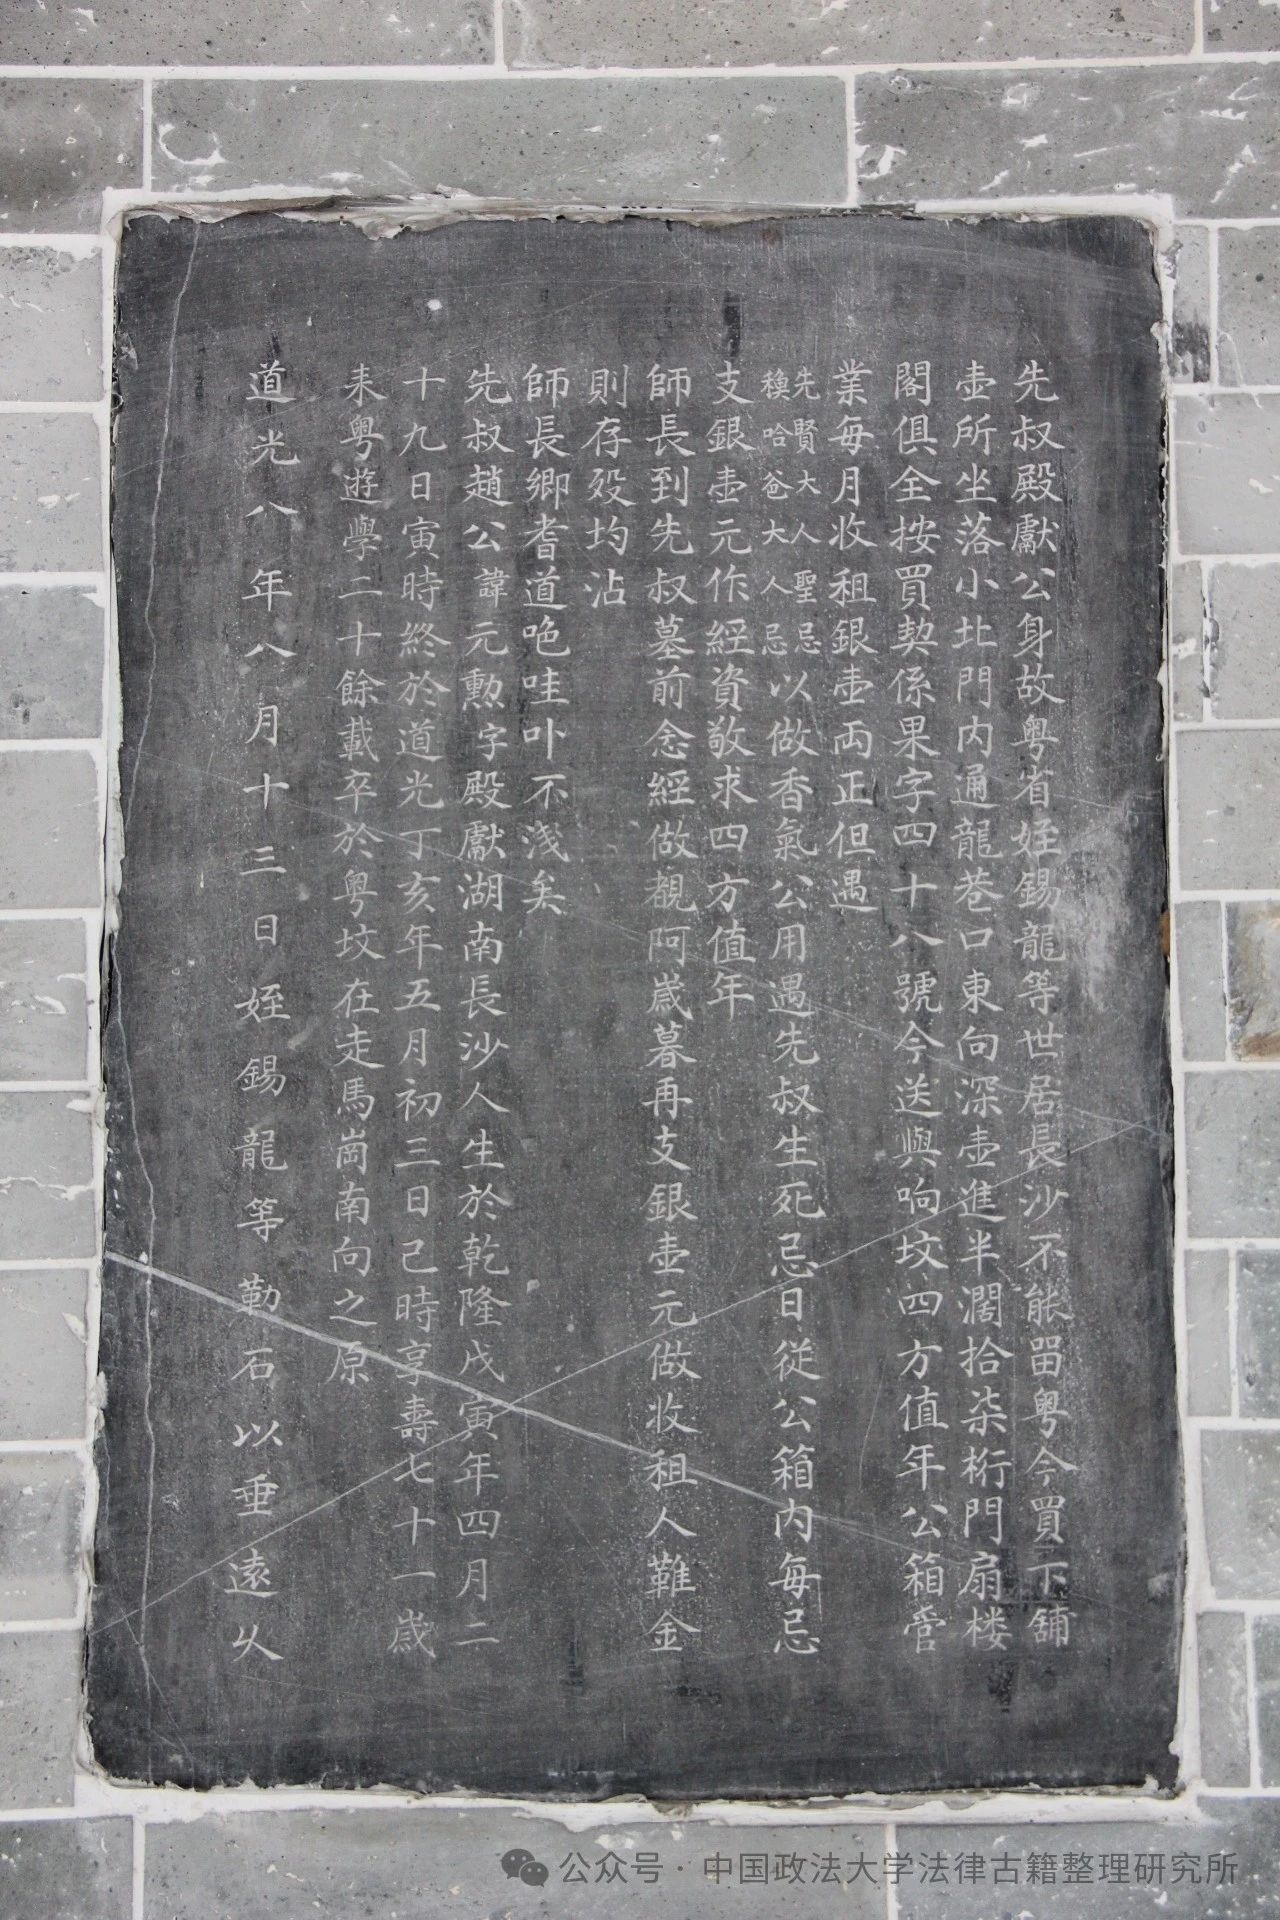 先叔殿獻公身故粤省姪錫龍等世居長沙不能畱粤今買下舖
壶所坐落小北門内通龍巷口東向深壶進半濶拾柒桁門扇楼
閣俱全按買契係果字四十八號今送與响坟四方值年公箱啻
業每月收租銀壶両正但遇
先賢大人聖忌
穆哈爸大人忌以做香氣公用遇先叔生死忌日從公箱内每忌
支銀壶元作經資敬求四方值年
師長到先叔墓前念經做覩阿嵗暮再支銀壶元做收租人難金
則存殁均沾
師長鄉耆道唈哇卟不浅矣
先叔趙公諱元勲字殿獻湖南長沙人生於乾隆戊寅年四月二
十九日寅時終於道光丁亥年五月初三日己時享壽七十一嵗
耒粤遊學二十餘載卒於粤坟在走馬崗南向之原
道光八年八月十三日姪錫龍等勒石以垂遠久
公众号·中国政法大学法律古籍整理研究所